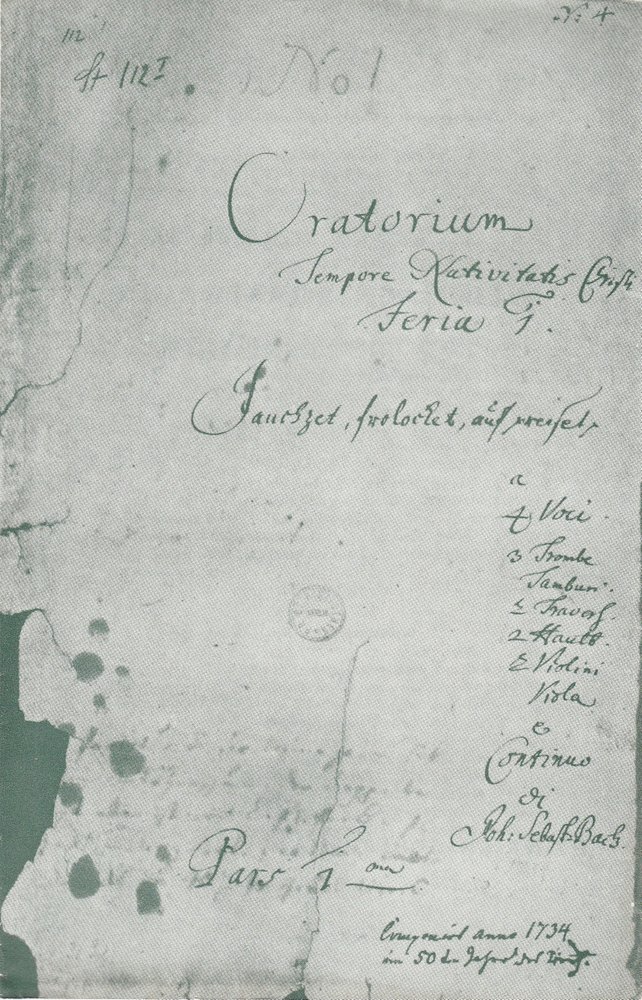 No 4
112
St 112 I
No 1
Oratorium
Tempore Nativitatis Christi
Feria 1.
Jauchzet, frolocket, auf, preiset,
a
4 Voci.
3 Trombe
Tamburi.
2 Travers.
2 Hautb.
2 Violini
Viola
e
Continuo
di
Joh: Sebast: Bach
Pars 1 ma
Componirt anno 1734
im 50